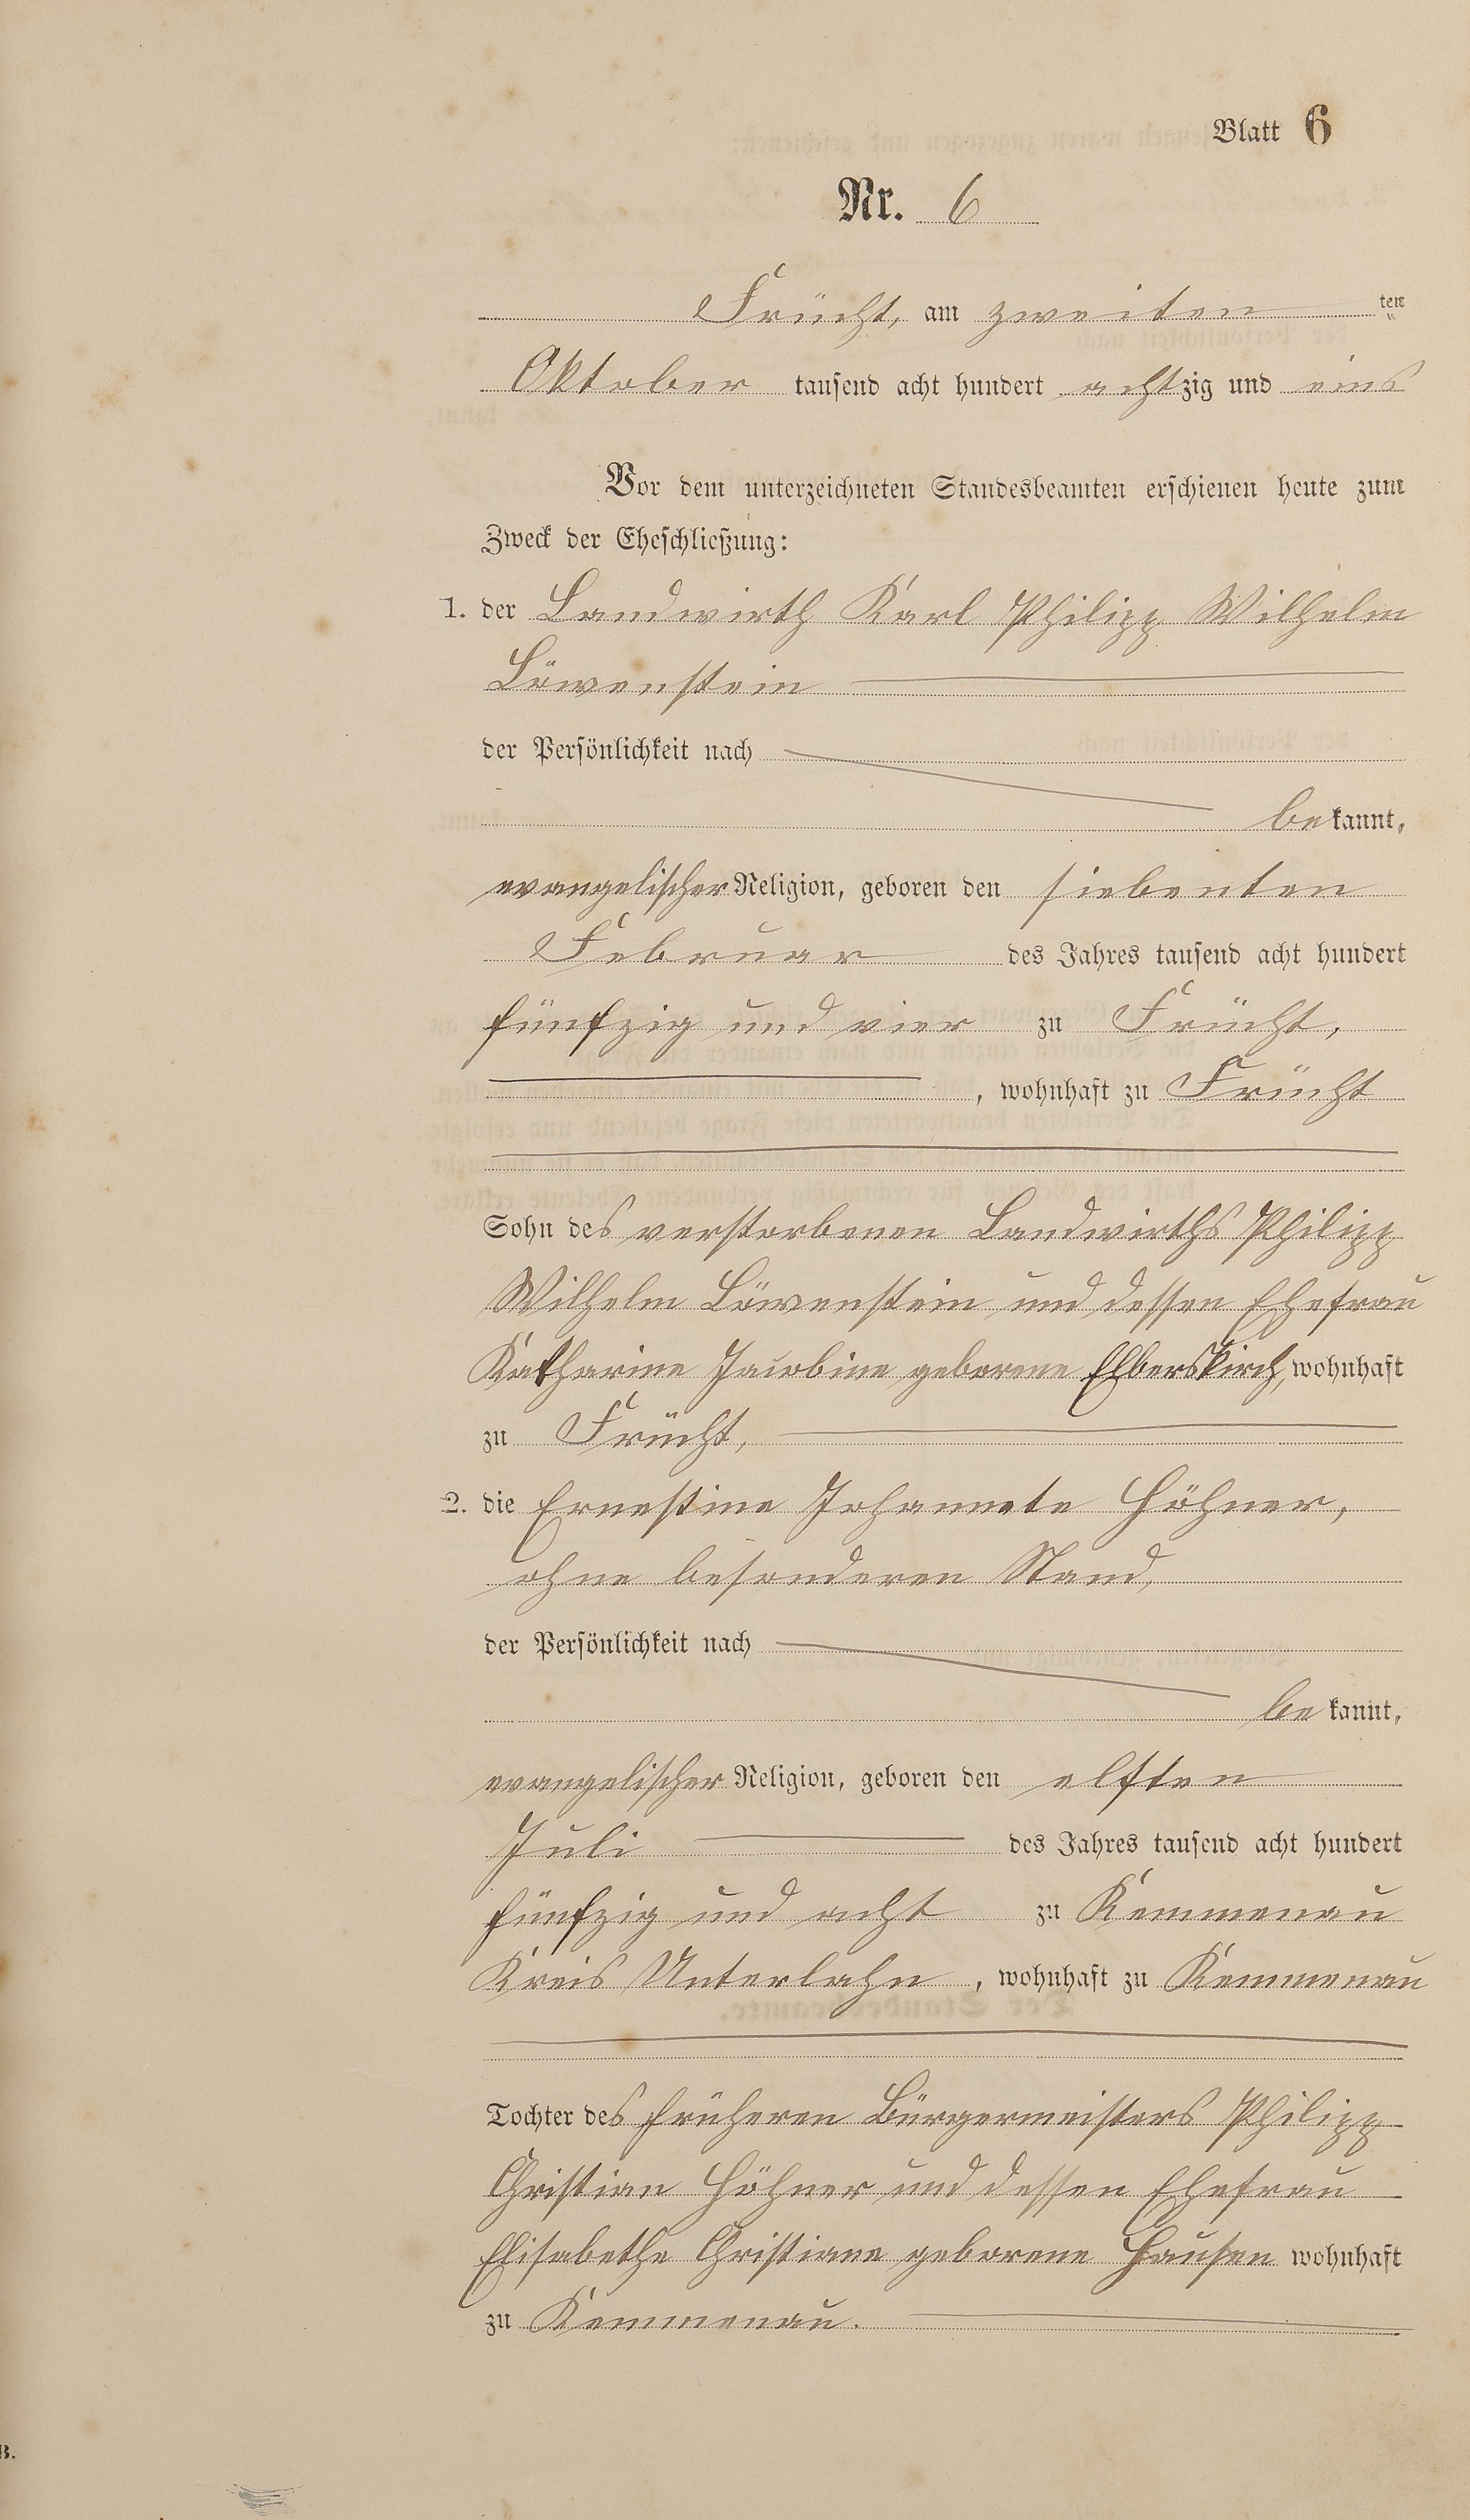 Blatt 6
Nr. 6
Frücht, am zweiten ten
Oktober tausend acht hundert achtzig und eins
Vor dem unterzeichneten Standesbeamten erschienen heute zum
Zweck der Eheschließung:
1. der Landwirth Karl Philipp Wilhelm
Löwenstein
der Persönlichkeit nach
bekannt,
evangelischer Religion, geboren den siebenten
Februar des Jahres tausend acht hundert
fünfzig und vier zu Frücht,
, wohnhaft zu Frücht
Sohn des verstorbenen Landwirths Philipp
Wilhelm Löwenstein und dessen Ehefrau
Katharine Jacobine geborene Elberskirch, wohnhaft
zu Frücht,
2. die Ernestine Johannete Höhner,
ohne besonderen Stand,
der Persönlichkeit nach
bekannt,
evangelischer Religion, geboren den elften
Juli des Jahres tausend acht hundert
fünfzig und acht zu Kemmenau
Kreis Unterlahn, wohnhaft zu Kemmenau
Tochter des früheren Bürgermeisters Philipp
Christian Höhner und dessen Ehefrau
Elisabethe Christiane geborene Hausen wohnhaft
zu Kemmenau.
B.